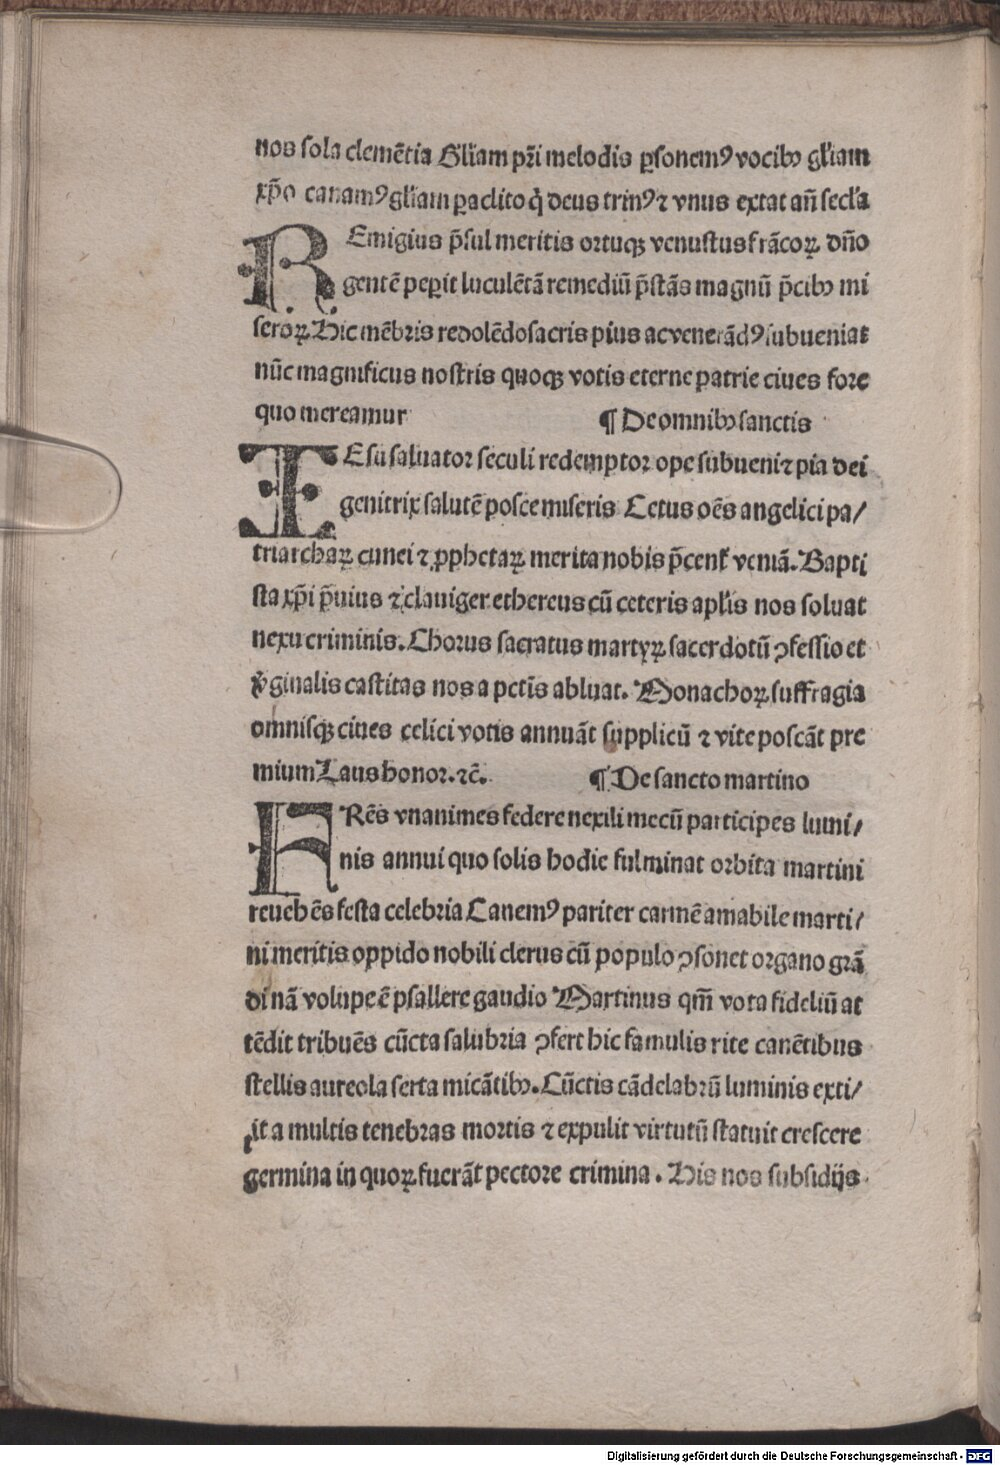 nos sola clemētia Gl'iam pr̄i melodis ꝑsonemꝰ vocibꝫ gl'iam
xp̄o canamꝰ gl'iam ꝑaclito q̇ deus trinꝰ ⁊ vnus extat an̄ secl'a
REmigius p̄sul meritis ortuqꝫ venustus frācoꝝ dn̄o
gentē peꝑit luculētā remediū p̄stās magnū p̄cibꝫ mi
seroꝝ. Hic mēbris redolēdo sacris pius ac venerādꝰ subueniat
nūc magnificus nostris quoqꝫ votis eterne patrie ciues fore
quo mereamur ¶ De omnibꝫ sanctis
IEsu saluator seculi redemptor ope subueni ⁊ pia dei
genitrix salutē posce miseris Cetus oēs angelici pa/
triarchaꝝ cunei ⁊ ꝓphetaꝝ merita nobis p̄cent᷑ veniā. Bapti
sta xp̄i p̄uius ⁊ clauiger ethereus cū ceteris apl'is nos soluat
nexu criminis. Chorus sacratus martyꝝ sacerdotū ꝯfessio et
v̇ginalis castitas nos a pctīs abluat. Monachoꝝ suffragia
omnisqꝫ ciues celici votis annuāt supplicū ⁊ vite poscāt pre
mium Laus honor. ⁊c̄. ¶ De sancto martino
FRēs vnanimes federe nexili mecū participes lumi/
nis annui quo solis hodie fulminat orbita martini
reuehēs festa celebria Canemꝰ pariter carmē amabile marti/
ni meritis oppido nobili clerus cū populo ꝯsonet organo grā
di nā volupe ē psallere gaudio Martinus qm̄ vota fideliū at
tēdit tribuēs cūcta salubria ꝯfert hic famulis rite canētibus
stellis aureola serta micātibꝫ. Cūctis cādelabrū luminis exti/
it a multis tenebras mortis ⁊ expulit virtutū statuit crescere
germina in quoꝝ fuerāt pectore crimina. His nos subsidijs
Digitalisierung gefördert durch die Deutsche Forschungsgemeinschaft - DFG